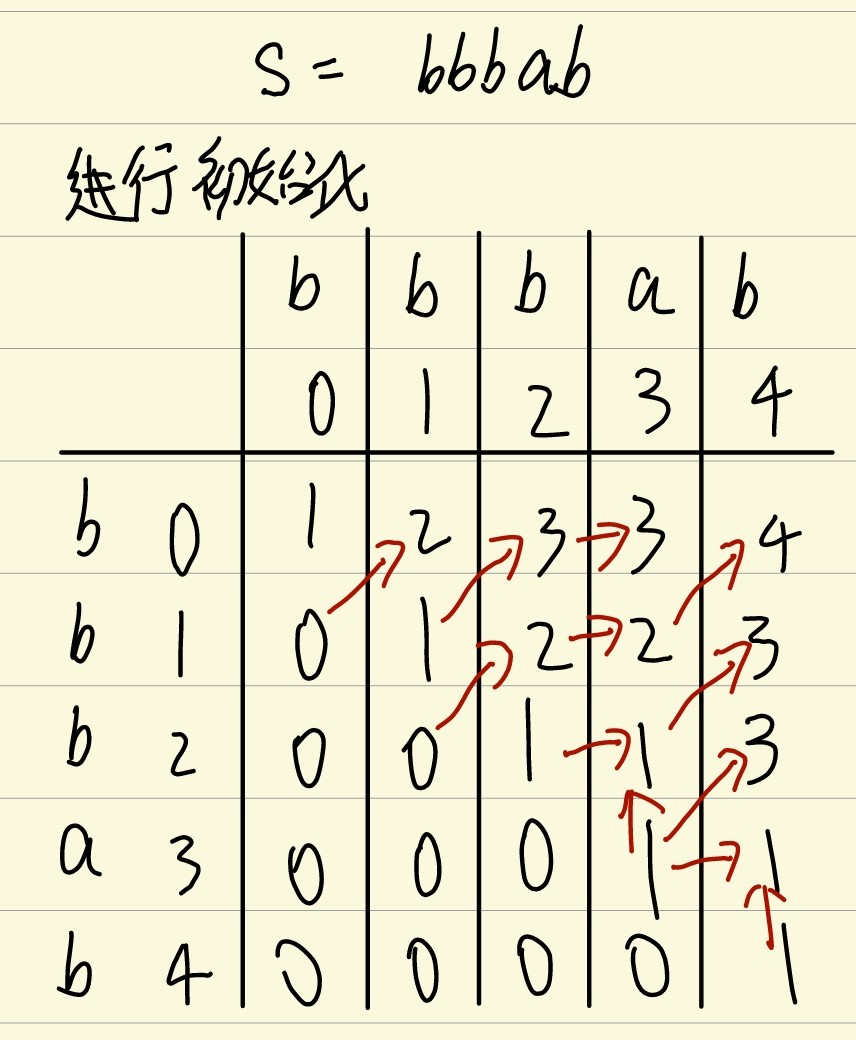 S = bbbab
进行初始化
b b b a b
0 1 2 3 4
b 0 1 2 3 3 4
b 1 0 1 2 2 3
b 2 0 0 1 1 3
a 3 0 0 0 1 1
b 4 0 0 0 0 1